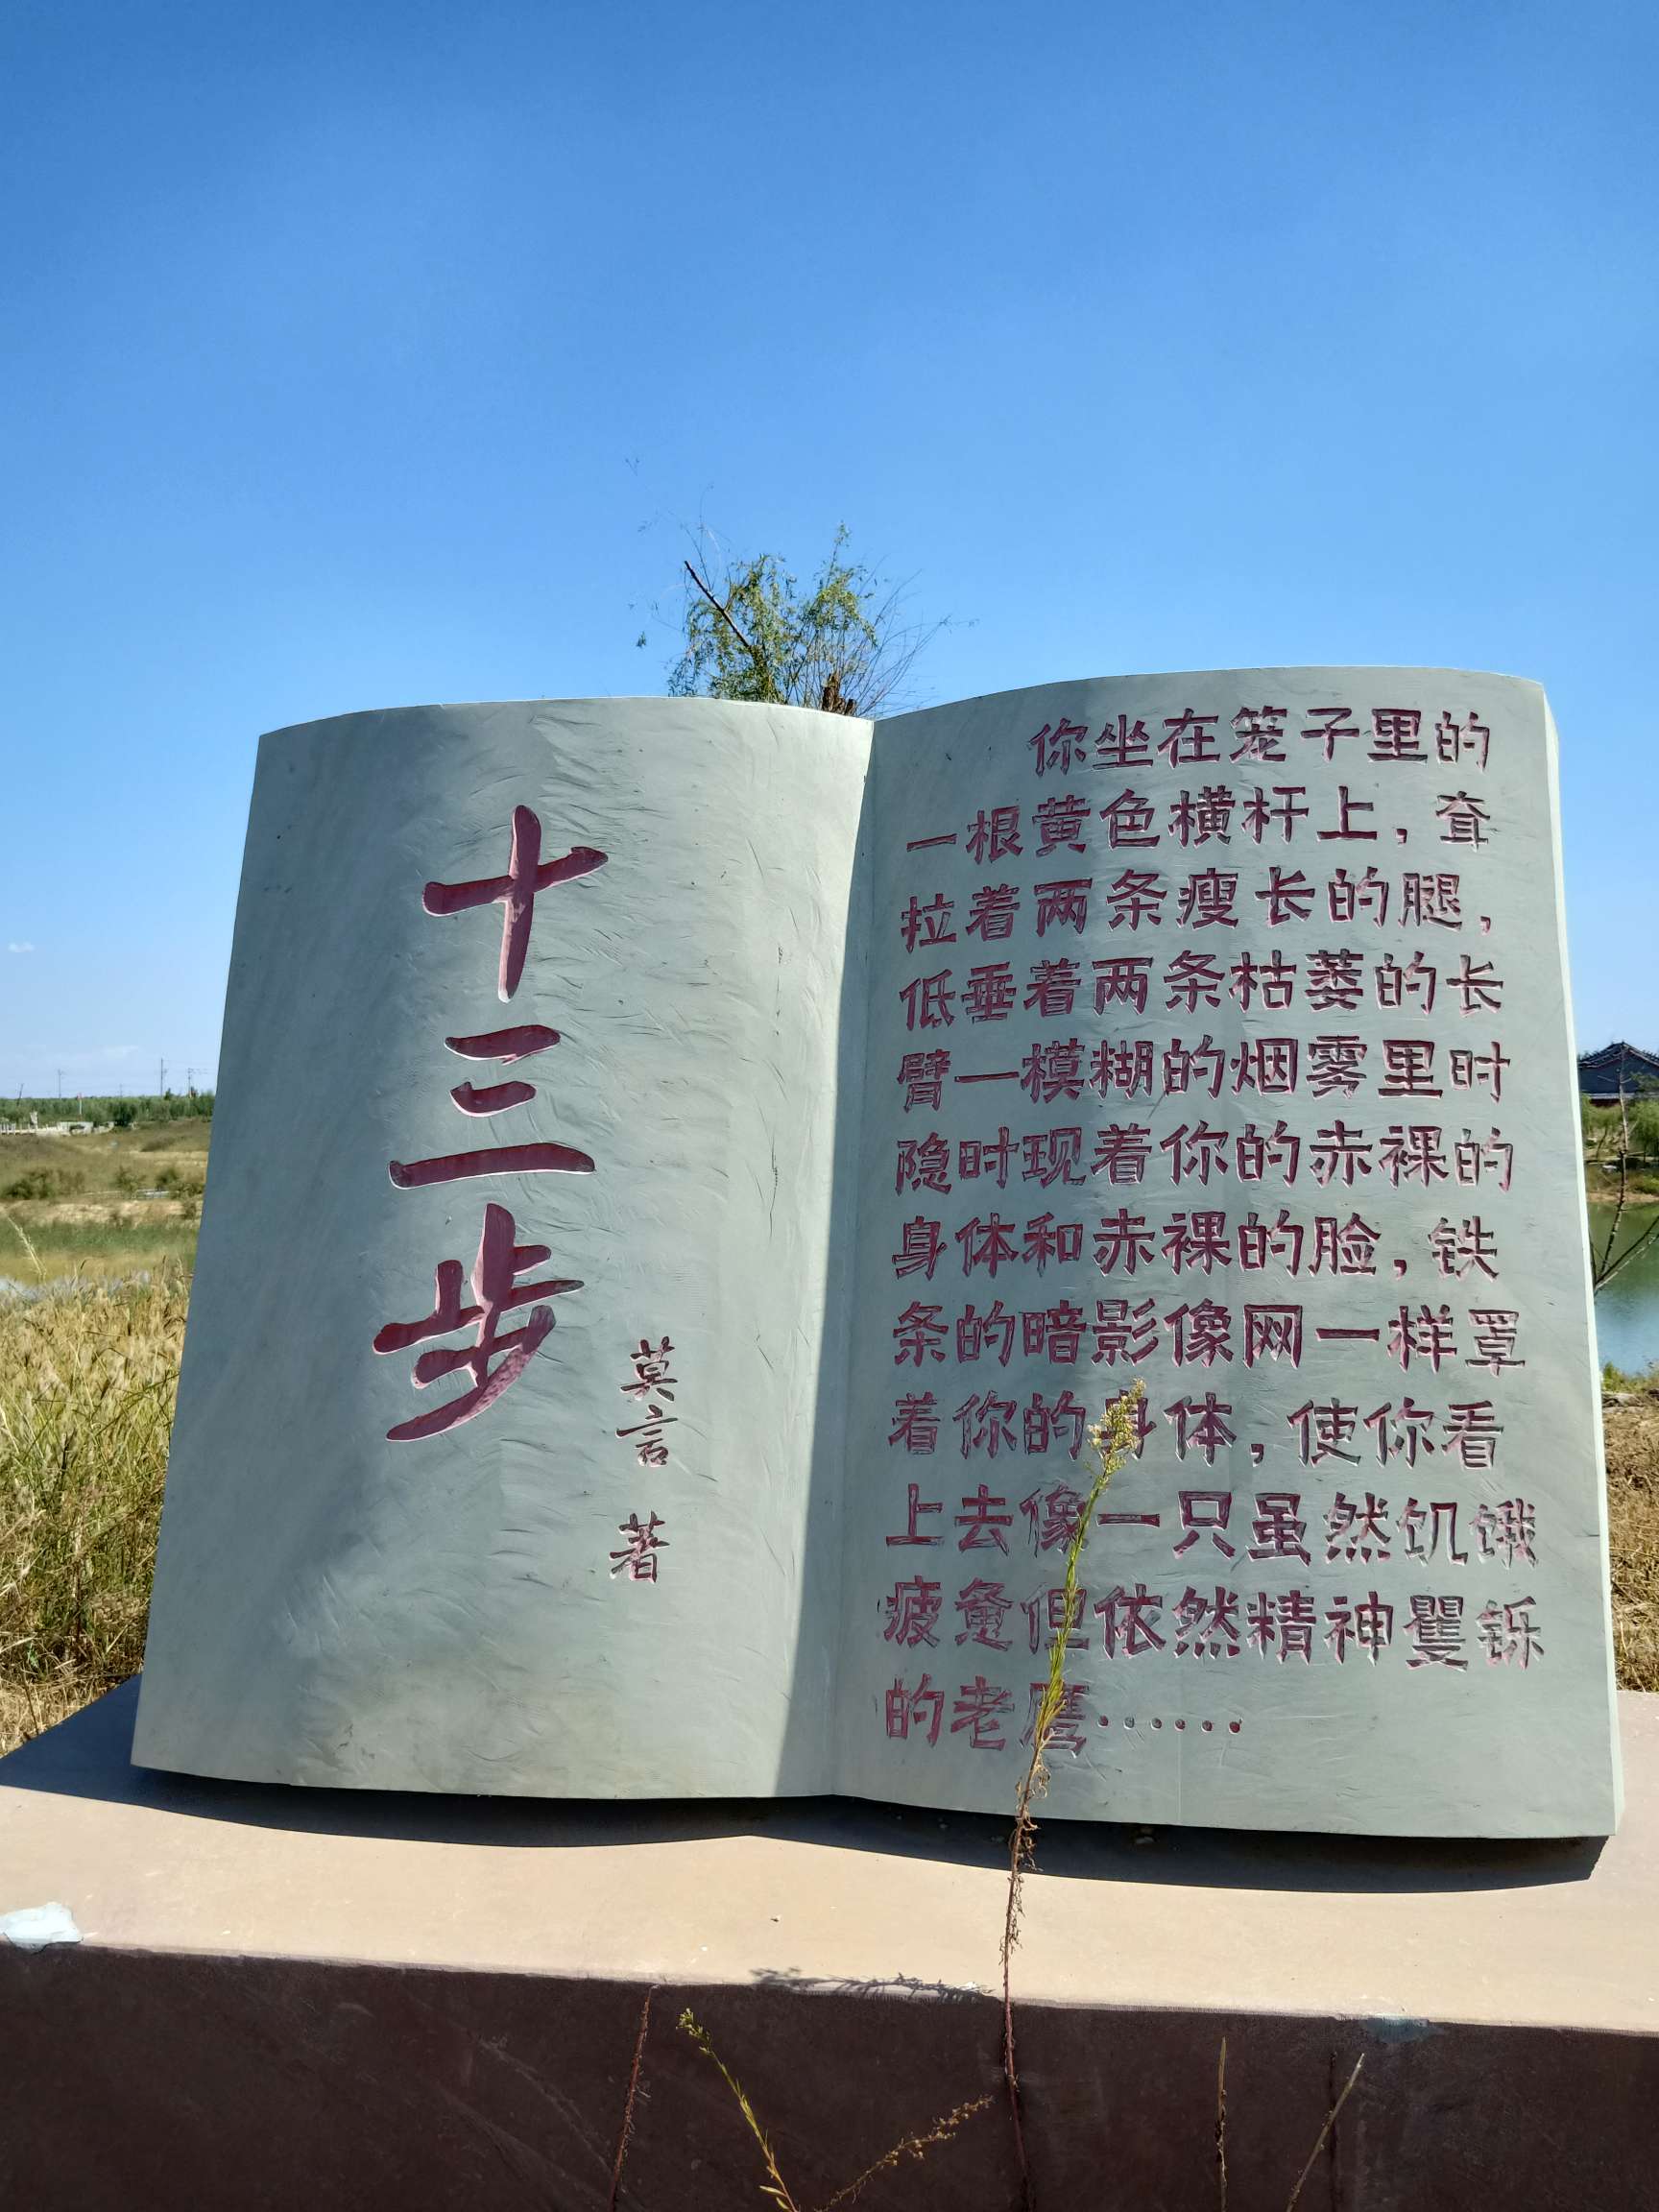 十三步
莫言 著
你坐在笼子里的
一根黄色横杆上，耷
拉着两条瘦长的腿，
低垂着两条枯萎的长
臂—模糊的烟雾里时
隐时现着你的赤裸的
身体和赤裸的脸，铁
条的暗影像网一样罩
着你的身体，使你看
上去像一只虽然饥饿
疲惫但依然精神矍铄
的老鹰……